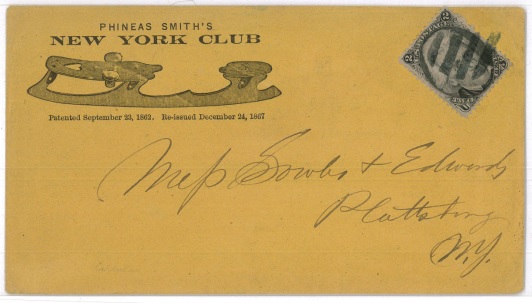 PHINEAS SMITH'S
NEW YORK CLUB
Patented September 23, 1862. Re-issued December 24, 1867
2 2
Mess Sowles & Edwards
Plattsburg
N.Y.